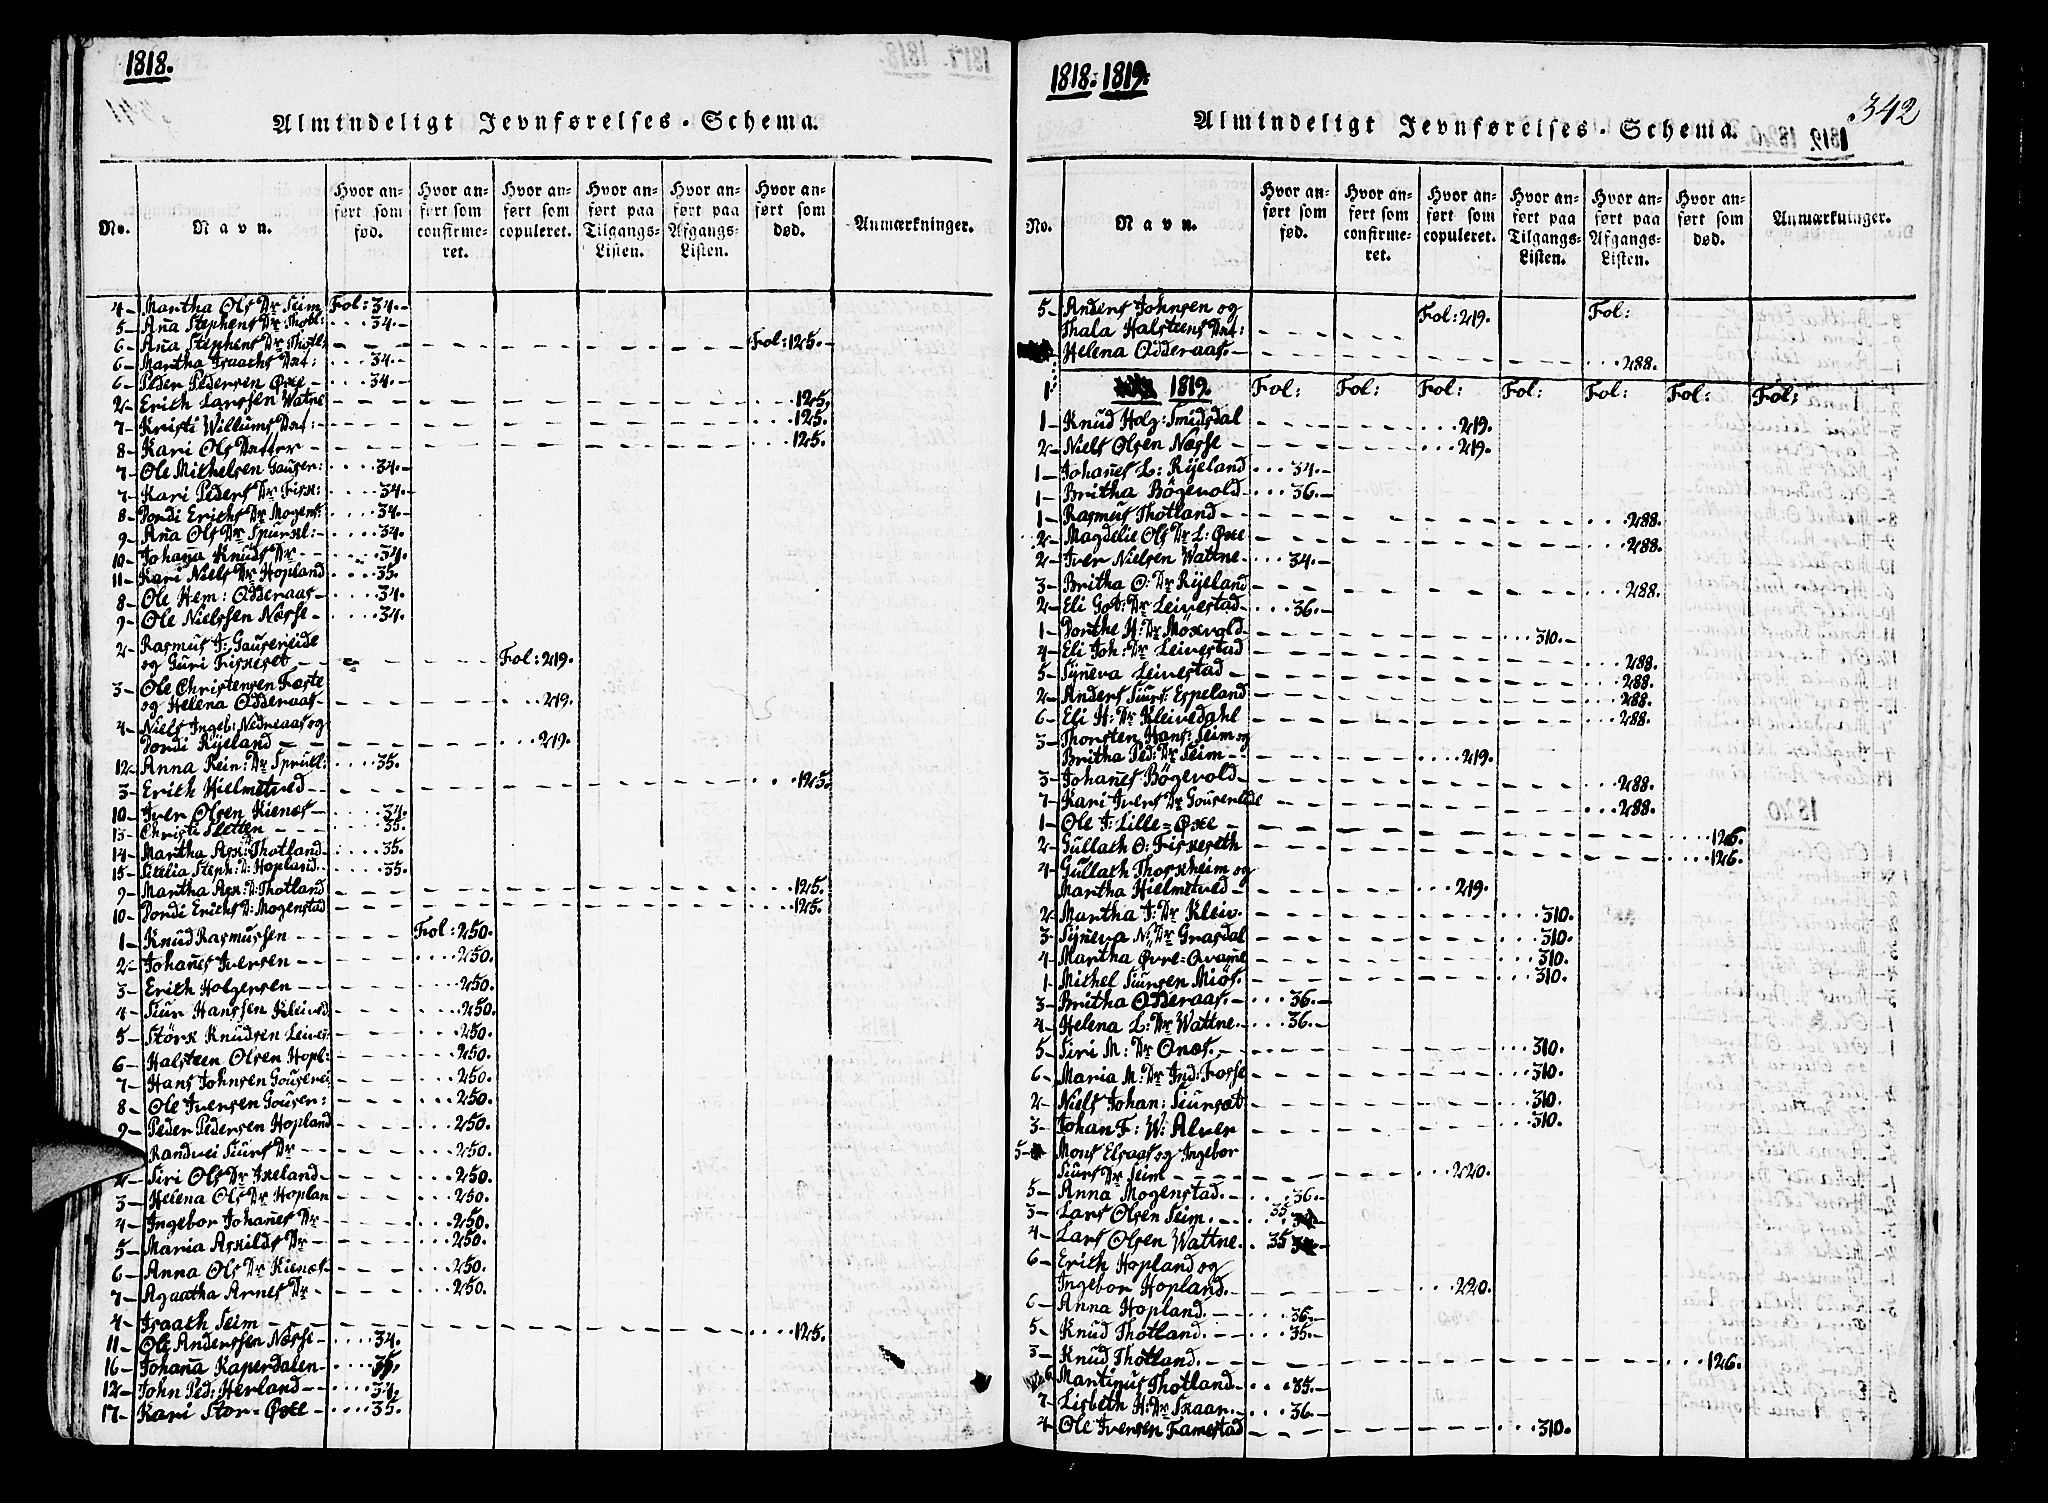 1818.
Almindeligt Jevnførelses-Schema.
No.
Navn.
Hvor anført som fød.
Hvor anført som confirmeret.
Hvor anført som copuleret.
Hvor anført paa Tilgangs-Listen.
Hvor anført paa Afgangs-Listen.
Hvor anført som død.
Anmærkninger.
4 Martha Ols Dr Seim Fol: 34.
5 Aña Stephens Dr Thotl: 34.
6 Aña Stephens Dr Thotl: Fol: 125.
6 Martha Isaachs Dat: 34.
6 Peder Pedersen Øxe 34.
2 Erich Larssen Watne 125.
7 Kristi Willums Dat: 125.
8 Kari Ols Datter 125.
7 Ole Michelsen Gauser: 34.
7 Kari Peders Dr Fisk: 34.
8 Dordi Erichs Dr Mogens: 34.
9 Aña Ols Dr Spurkl: 34.
10 Johaña Knuds Dr 34.
11 Kari Niels Dr Hopland 35.
8 Ole Hem: Odderaas 34.
9 Ole Nielssen Nœsse 34.
2 Rasmus J: Gausereide
og Guri Friskeset Fol: 219.
3 Ole Christensen Fœste
og Helena Odderaas 219.
4 Niels Ingeb: Nedreaas og
Dordi Rÿeland 219.
12 Anna Rein: Dr Spruel: 35.
3 Erich Hielmetved 125.
10 Iver Olsen Kienœs 34.
13 Christi Sletten 35.
14 Martha Ask: Thotland 35.
15 Sicelia Steph: D: Hopland 35.
9 Martha Ask: D: Thotland 125.
10 Dordi Erichs D: Mogenstad 125.
1 Knud Rasmussen Fol: 250.
2 Johañes Iversen 250.
3 Erich Holgersen 250.
4 Siur Hanssen Kleived 250.
5 Störk Knudsen Leives: 250.
6 Halsteen Olsen Hopl: 250.
7 Hans Johnsen Gouserei 250.
8 Ole Iversen Gouser: 250.
9 Peder Pedersen Hopland 250.
Randvei Siurs Dr 250.
2 Siri Ols Dr Ixeland 250.
3 Helena Ols Dr Hoplan 250.
4 Ingebor Johañes Dr 250.
5 Maria Askilds Dr 250.
6 Anna Ols Dr Kienœs 250.
7 Agaatha Arnes Dr 250.
4 Isaach Seim 125.
11 Ole Anderssen Nœsse 34.
16 Johaña Kaperdalen 35.
12 John Ped: Herland 34.
17 Kari Stor-Øxe 35.
1818. 1819.
342
Almindeligt Jevnførelses-Schema.
No.
Navn.
Hvor anført som fød.
Hvor anført som confirmeret.
Hvor anført som copuleret.
Hvor anført paa Tilgangs-Listen.
Hvor anført paa Afgangs-Listen.
Hvor anført som død.
Anmærkninger.
5 Anders Johnsen og Fol: 219. Fol:
Thala Halsteens Dat:
Helena Odderaas 288.
1819. Fol: Fol: Fol: Fol: Fol: Fol: Fol:
1 Knud Holg: Smidsdal 219.
2 Niels Olsen Nœsse 219.
1 Johañes L: Rÿeland 34.
1 Britha Bögevold 36.
1 Rasmus Thotland 288.
2 Magdelie Ols Dr L: Øxe 288.
2 Iver Nielsen Wattne 34.
3 Britha O: Dr Rÿeland 288.
2 Eli Got: Dr Leivestad 36.
1 Dorthe H: Dr Möxvold 310.
4 Eli Joh: Dr Leivestad 288.
5 Sÿneva Leivestad 288.
2 Anders Siurs: Espeland 288.
6 Eli H: Dr Kleivedahl 288.
3 Thorsten Hans: Seim og
Britha Ped: Dr Seim 219.
3 Johañes Bögevold 288.
7 Kari Ivers Dr Gousereide 288.
1 Ole J: Lille=Øxe 126.
2 Gullach O: Friskeseth 126.
4 Gullach Thorxheim og
Martha Hielmetved 219.
2 Martha J: Dr Kleiv. 310.
3 Sÿneva N: Dr Grasdal 310.
4 Martha Øvre=Qvame 310.
1 Michel Siursen Miös. 310.
3 Britha Odderaas. 36.
4 Helena L: Dr Wattne 36.
5 Siri M: Dr Onœs. 310.
6 Maria M: Dr Ind: Fosse 310.
2 Niels Johan: Siursœt 310.
3 Johan F: W: Alver 310.
5 Mons Elsaas og Ingebor
Siurs Dr Seim 220.
5 Anna Mogenstad. 36.
3 Lars Olsen Seim. 35
4 Lars Olsen Wattne. 35
6 Erich Hopland og
Ingebor Hopland. 220.
6 Anna Hopland. 36.
5 Knud Thotland. 35.
3 Knud Thotland. 126.
6 Martinus Thotland 35.
7 Lisbeth H: Dr Skaar 36.
4 Ole Iversen Famestad 310.